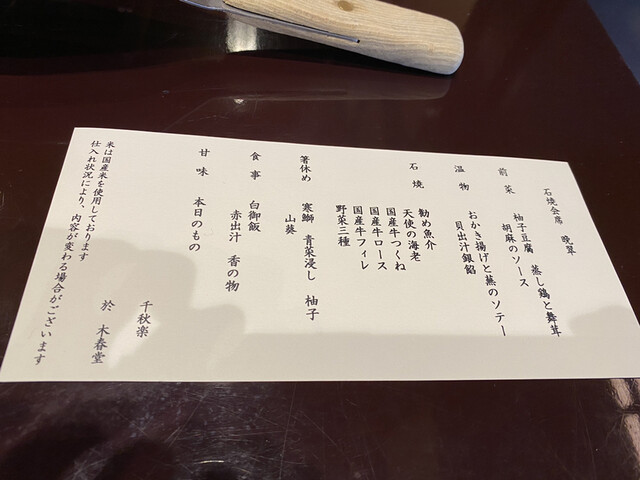 石焼会席 晩翠
前菜 柚子豆腐 蒸し鶏と舞茸
胡麻のソース
温物 おかき揚げと蕪のソテー
貝出汁銀餡
石焼 勧め魚介
天使の海老
国産牛つくね
国産牛ロース
国産牛フィレ
野菜三種
箸休め 寒鰤 青菜浸し 柚子
山葵
食事 白御飯
赤出汁 香の物
甘味 本日のもの
千秋楽
於 木春堂
米は国産米を使用しております
仕入れ状況により、内容が変わる場合がございます